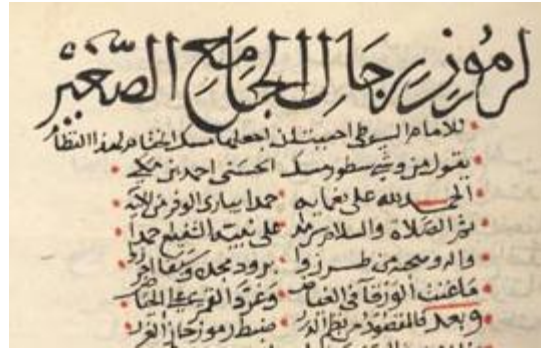 لرموز رجال الجامع الصغير
للامام السيوطي احببت ان اجعلها مسك الختام لهذا النظام
يقول من وشي سطور مسك الحسني احمد بن مكي
الحمد لله على نعمايه حمدا يباري الوفر من الايه
ثم الصلاة والسلام سرمدا على نبيه الشفيع احمدا
واله وصحبه من طرزوا برود مجد
ما غنت الورقا في الغياض وغرد القمري على
وبعد فالمقصود من نظم الدرر ضبط رموز حاز